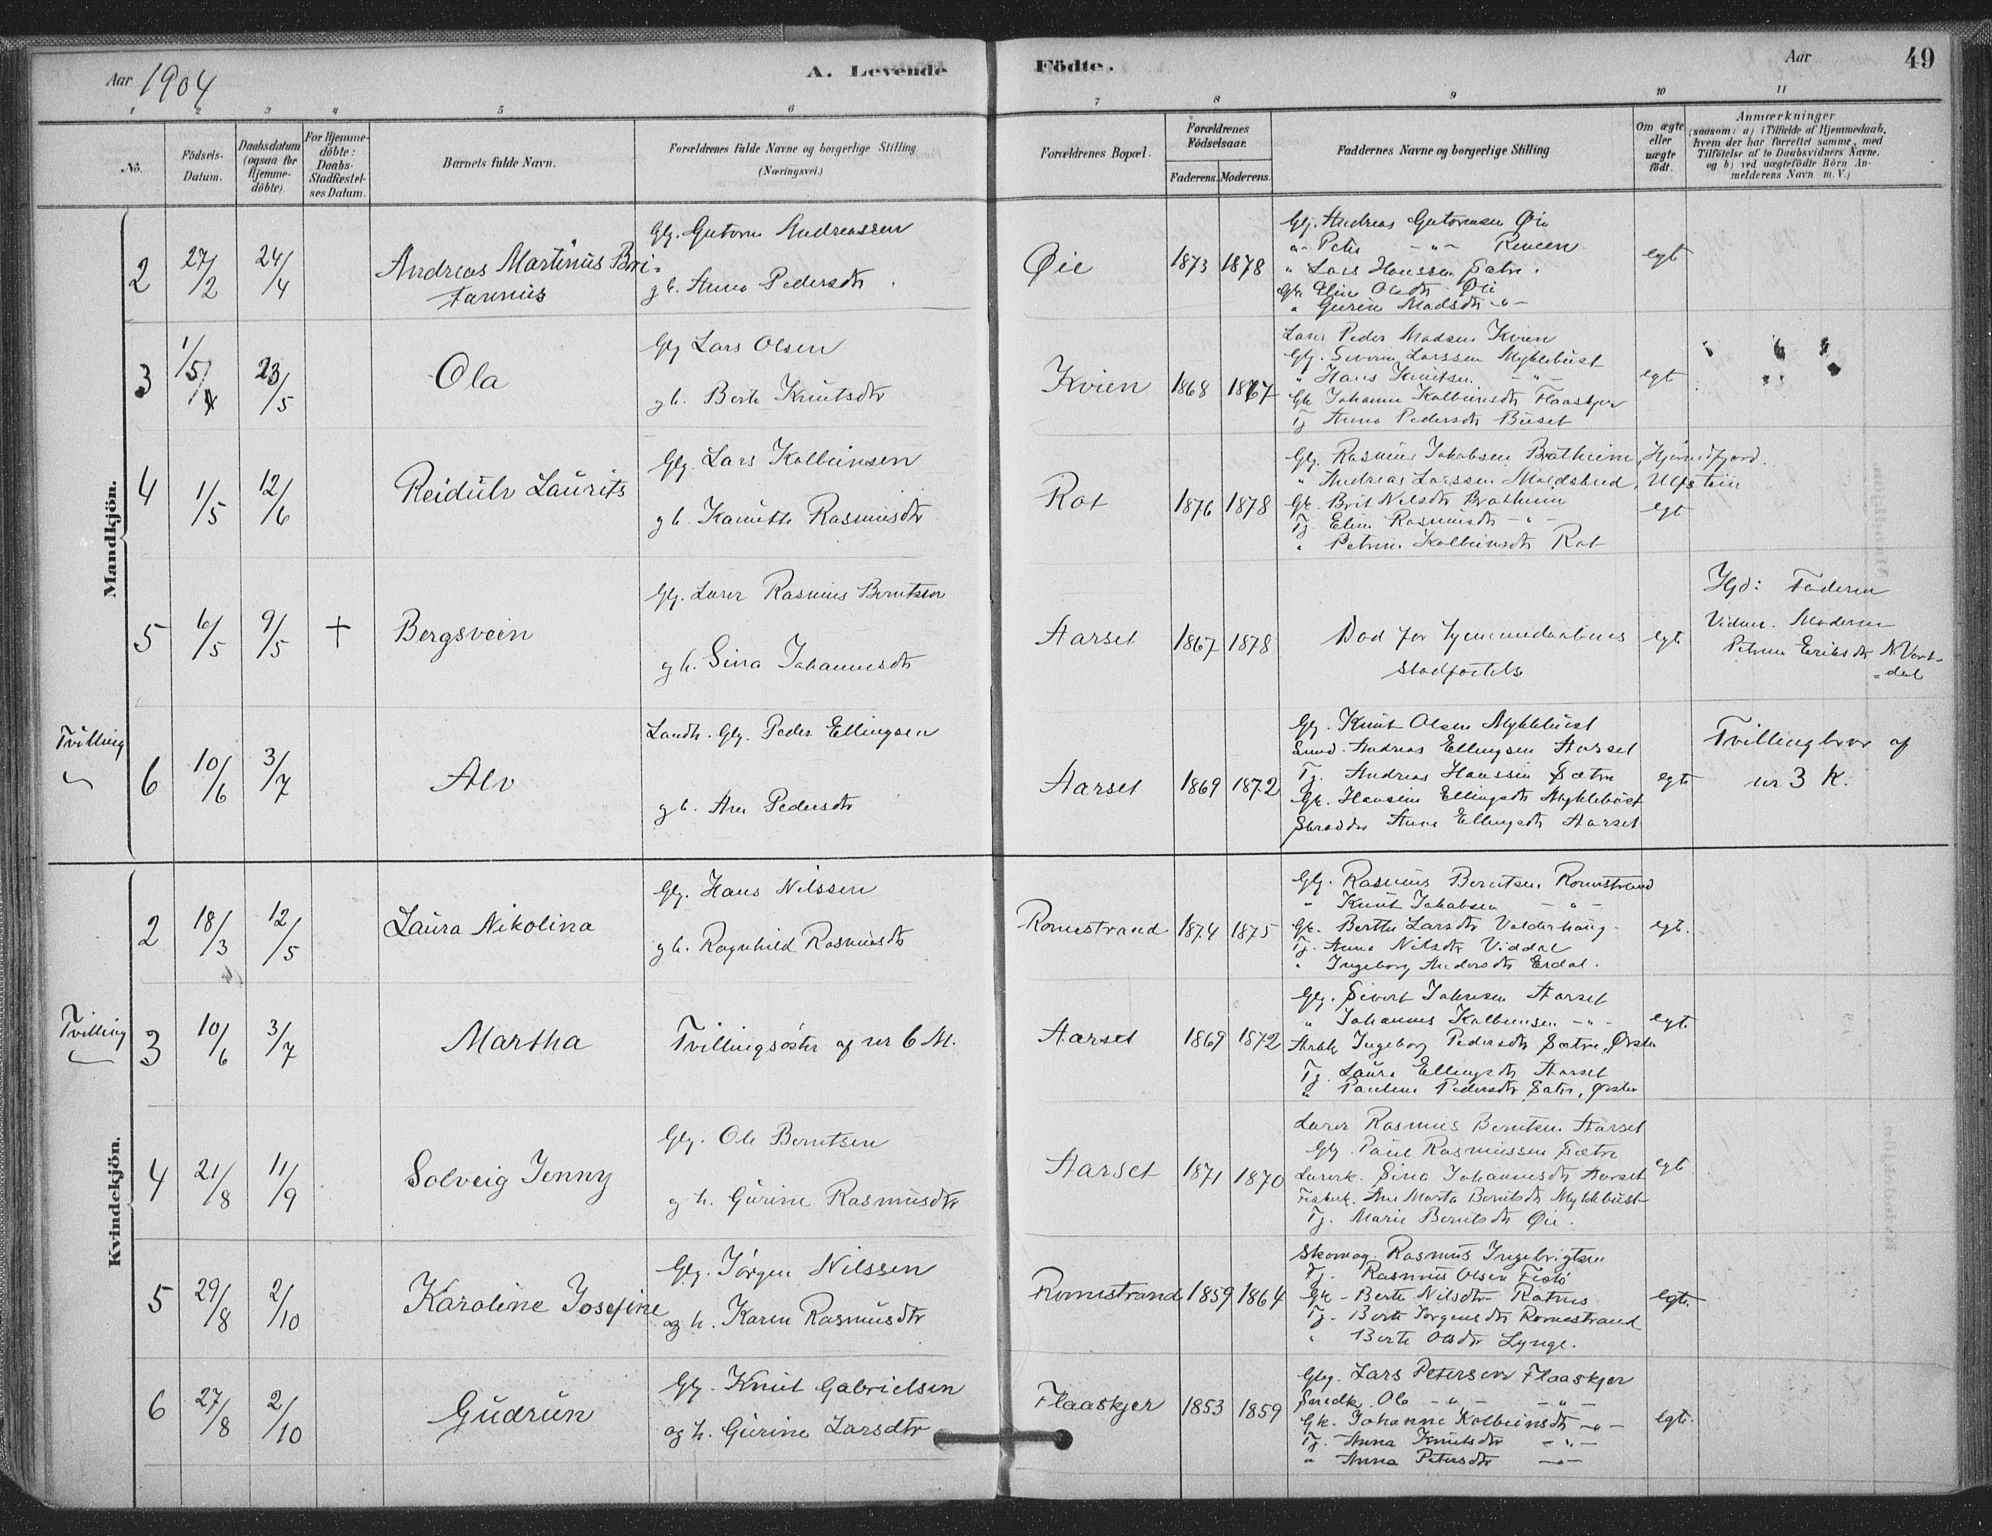 Aar 1904
A. Levende Födte.
Aar
49
1 2 3 4 5 6 7 8 9 10 11
No.
Födsels-Datum.
Daabsdatum (ogsaa for Hjemme-döbte).
For Hjemme-döbte: Daabs-Stadfæstel-ses Datum.
Barnets fulde Navn.
Forældrenes fulde Navne og borgerlige Stilling (Næringsvei.)
Forældrenes Bopæl.
Forældrenes Födselsaar.
Faderens. Moderens.
Faddernes Navne og borgerlige Stilling
Om ægte eller uægte födt.
Anmærkninger
(saasom: a) i Tilfælde af Hjemmedaab, hvem der har forrettet samme, med Tilföielse af to Daabsvidners Navne, og b) ved uægtefödte Börn Anmelderens Navn m. V.)
Mandkjön.
2 27/2 24/4 Andreas Martinus Bri-
tannus
Glg. Guttorm Andreassen
g h. Anna Pedersdtr
Øie 1873 1878
Glg. Andreas Guttormsen Øie
" Peter - " -
" Lars Hanssen Sætre.
Gk. Eline Olsdtr Øie
" Gurine Madsdtr - " -
egt
3 1/5 23/5 Ola
Glg Lars Olsen
g h. Berte Knutsdtr
Kvien 1868 1867
Peder Madsen Kvien
Glg. Severin Larssen Myklebust
" Hans Knutsen - " -
Gk Johanne Kolbeinsdtr Flaaskjer
Tj Anna Pedersdtr
egt
4 1/5 12/6 Reidulv Laurits
Glg. Lars Kolbeinsen
g h. Rasmusdtr
Rot 1876 1878
Glg. Rasmus Jakobsen Bratheim, Hjørundfjord.
" Andreas Larssen Molds, Ulfstein
Gk. Brit Nilsdtr Bratheim
Tj. Eline Rasmusdtr - " -
" Petrine Kolbeinsdtr Rot
egt
5 6/5 9/5 † Bergsvein
Glg. Lærer Rasmus Berntsen
g h. Sina Johannesdtr
Aarset 1867 1878
Død før hjemmedaabens
stadfæstels
egt
Hjd: Faderen
Vidner. Moderen
Petrine Eriksdtr N. Vart-
dal
Tvilling
6 10/6 3/7 Alv
Landh. Glg. Peder Ellingsen
g h. Ane Pedersdtr
Aarset 1869 1872
Glg. Knut Olsen Myklebust
Andreas Ellingsen Aarset
Tj. Andreas Hanssen Sætre
Gk. Hansine Ellingsdtr Myklebust
Anne Ellingsdtr Aarset
egt
Tvillingbror af
nr 3 K.
Kvindekjön.
2 18/3 12/5 Laura Nikolina
Glg. Hans Nilssen
g h. Ragnhild Rasmusdtr
Romestrand 1874 1875
Glg. Rasmus Berntsen Romestrand
" Knut Jakobsen - " -
Gk. Berthe Larsdtr Valderhaug
Tj. Anna Nilsdtr Viddal
" Ingeborg Andersdtr Erdal.
egt.
Tvilling
3 10/6 3/7 Martha
Tvillingsøster af nr 6 M.
Aarset 1869 1872
Glg. Sivert Johnsen Aarset
" Johannes Kolbeinsen - " -
Ingeborg Pedersdtr Sætre, Ørsten
Tj. Laura Ellingsdtr Aarset
" Pauline Pedersdtr Sætre, Ørsten
egt.
4 21/8 11/9 Solveig Jenny
Glg. Ole Berntsen
g h. Gurine Rasmusdtr
Aarset 1871 1870
Lærer Rasmus Berntsen Aarset
Glg. Paul Rasmussen Sætre
Lærerk. Sina Johannesdtr Aarset
Fiskerk. Ane Marta Berntsdtr Myklebust
Tj. Marie Berntsdtr Øie.
egt
5 29/8 2/10 Karoline Josefine
Glg. Jørgen Nilssen
og h. Karen Rasmusdtr
Romestrand 1859 1864
Skomag. Rasmus Ingebrigtsen
Tj. Rasmus Olsen
Gk - Berte Nilsdtr
Tj. Berte Jørgensdtr Romestrand
" Berte Olsdtr Lynge.
egt.
6 27/8 2/10 Gudrun
Glg. Knut Gabrielsen
og h. Gurine Larsdtr
Flaaskjer 1853 1859
Glg. Lars Petersen Flaaskjer
Ole - " - - " -
Gk. Johanne Kolbeinsdtr - " -
Tj. Anna Knutsdtr - " -
" Anna Petersdtr - " -
egt.